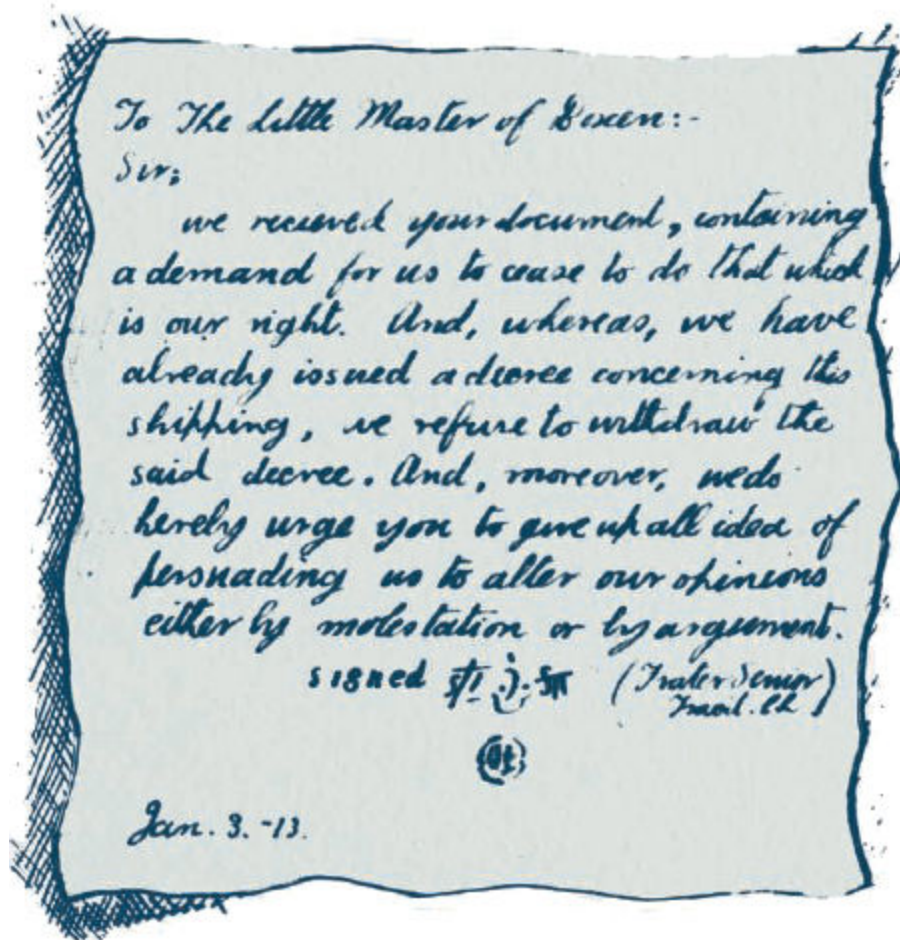 To The Little Master of Boxen:-
Sir;
we recieved your document, containing
a demand for us to cease to do that which
is our right. And, whereas, we have
already issued a decree concerning this
shipping, we refuse to withdraw the
said decree. And, moreover, we do
hereby urge you to give up all idea of
persuading us to alter our opinions
either by molestation or by argument.
signed (Frater Senior)
Jan. 3.-13.